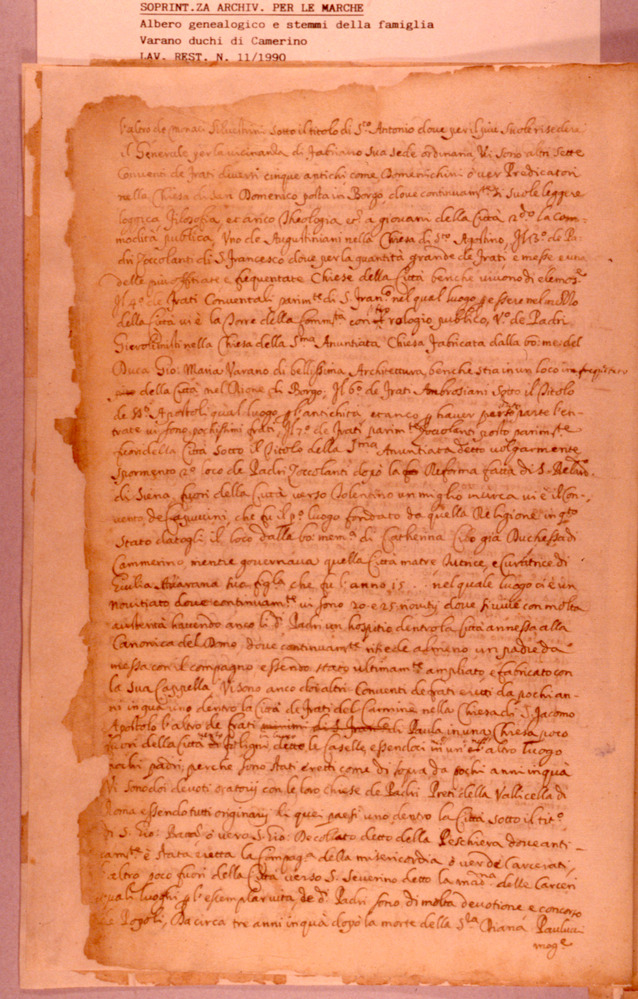 SOPRINT.ZA ARCHIV. PER LE MARCHE
Albero genealogico e stemmi della famiglia
Varano duchi di Camerino
LAV. REST. N. 11/1990
l'altro de monaci Silvestrini sotto il titolo di S.to Antonio dove per il più suole risedere
il Generale per la vicinanza di Fabriano sua sede ordinaria. Vi sono altri sette
Conventi de frati diversi cinque antichi come Domenichini ò ver Predicatori
nella Chiesa di San Domenico posta in Borgo dove continuam.te si suole leggere
loggica filosofia, et anco Theologia et à giovani della Città la com-
modità publica, Uno de Augustiniani nella Chiesa di S.to Agostino, Il 3.º de Pa-
dri Zoccolanti di S. francesco dove per la quantità grande de frati e messe è una
delle più offitiate e frequentate Chiese della Città benche vivono di elemos.e
Il 4.º de frati Conventali parim.te di S. Fran.co nel qual luogo p essere nel mezzo
della Città vi è la Torre della Comm.tà con orologio publico, V.º de Padri
Gierolimini nella Chiesa della S.ma Anuntiata Chiesa fabricata dalla bo: me: del
Duca Gio: Maria Varano di bellissima Architettura, benche stia in un loco
della Città nel Rione di Borgo; Il 6.º de frati Ambrosiani sotto il Titolo
de SS.ti Apostoli qual luogo p l'antichità et anco p haver parte l'en-
trate vi sono pochissimi frati. Il 7.º de frati parim.te Zoccolanti posto parim.te
fuori della Città sotto il Titolo della S.ma Anuntiata detto volgarmente
Spermento 2.º loco de Padri Zoccolanti dopò la Reforma fatta di S. Bern.no
di Siena, fuori della Città verso Tolentino un miglio incirca vi è il Con-
vento de Capuccini, che fu il p.º luogo fondato da quella Religione in q.to
stato datogli il loco dalla bo: mem.a di Catherina Cibo già Duchessa di
Cammerino, mentre governava quella Città matre Tutrice, e Curatrice di
Giulia Varana sua figl.a che fu l'anno 15.. nel quale luogo ci è un
Novitiato dove continuam.te vi sono 20 e 25 novitij dove si vive con molta
austerità havendo anco li d.i Padri un hospitio dentro la Città annessa alla
Canonica del Domo, dove continuam.te risiede almeno un padre da
messa con il compagno essendo stato ultimam.te ampliato, e fabricato con
la sua Cappella. Vi sono anco doi altri Conventi de frati eretti da pochi an-
ni in quà uno dentro la Città de frati del Carmine nella Chiesa di S. Jacomo
Apostolo l'altro de frati minimi di S. Franc.o di Paula in una Chiesa poco
fuori della Città verso Foligni detto le Caselle essendoci in un et altro luogo
pochi padri, perche sono stati eretti come di sopra da pochi anni in quà
Vi sono doi devoti oratorij con le loro chiese de Padri Preti della Vallicella di
Roma essendo tutti originarij di quei paesi uno dentro la Città sotto il tit.o
di S. Gio: Batt.a ò vero S. Gio: Decollato detto della Peschiera dove anti-
cam.te è stata eretta la Compag.a della misericordia ò ver de Carcerati,
l'altro poco fuori della Città verso S. Severino detto la mad.na delle Carceri
quali luoghi p l'esemplar vita de d.i Padri sono di molta devotione, e concorso
de Popoli, Da circa tre anni in quà dopò la morte della S.ra Diana Paulucci
mog.e